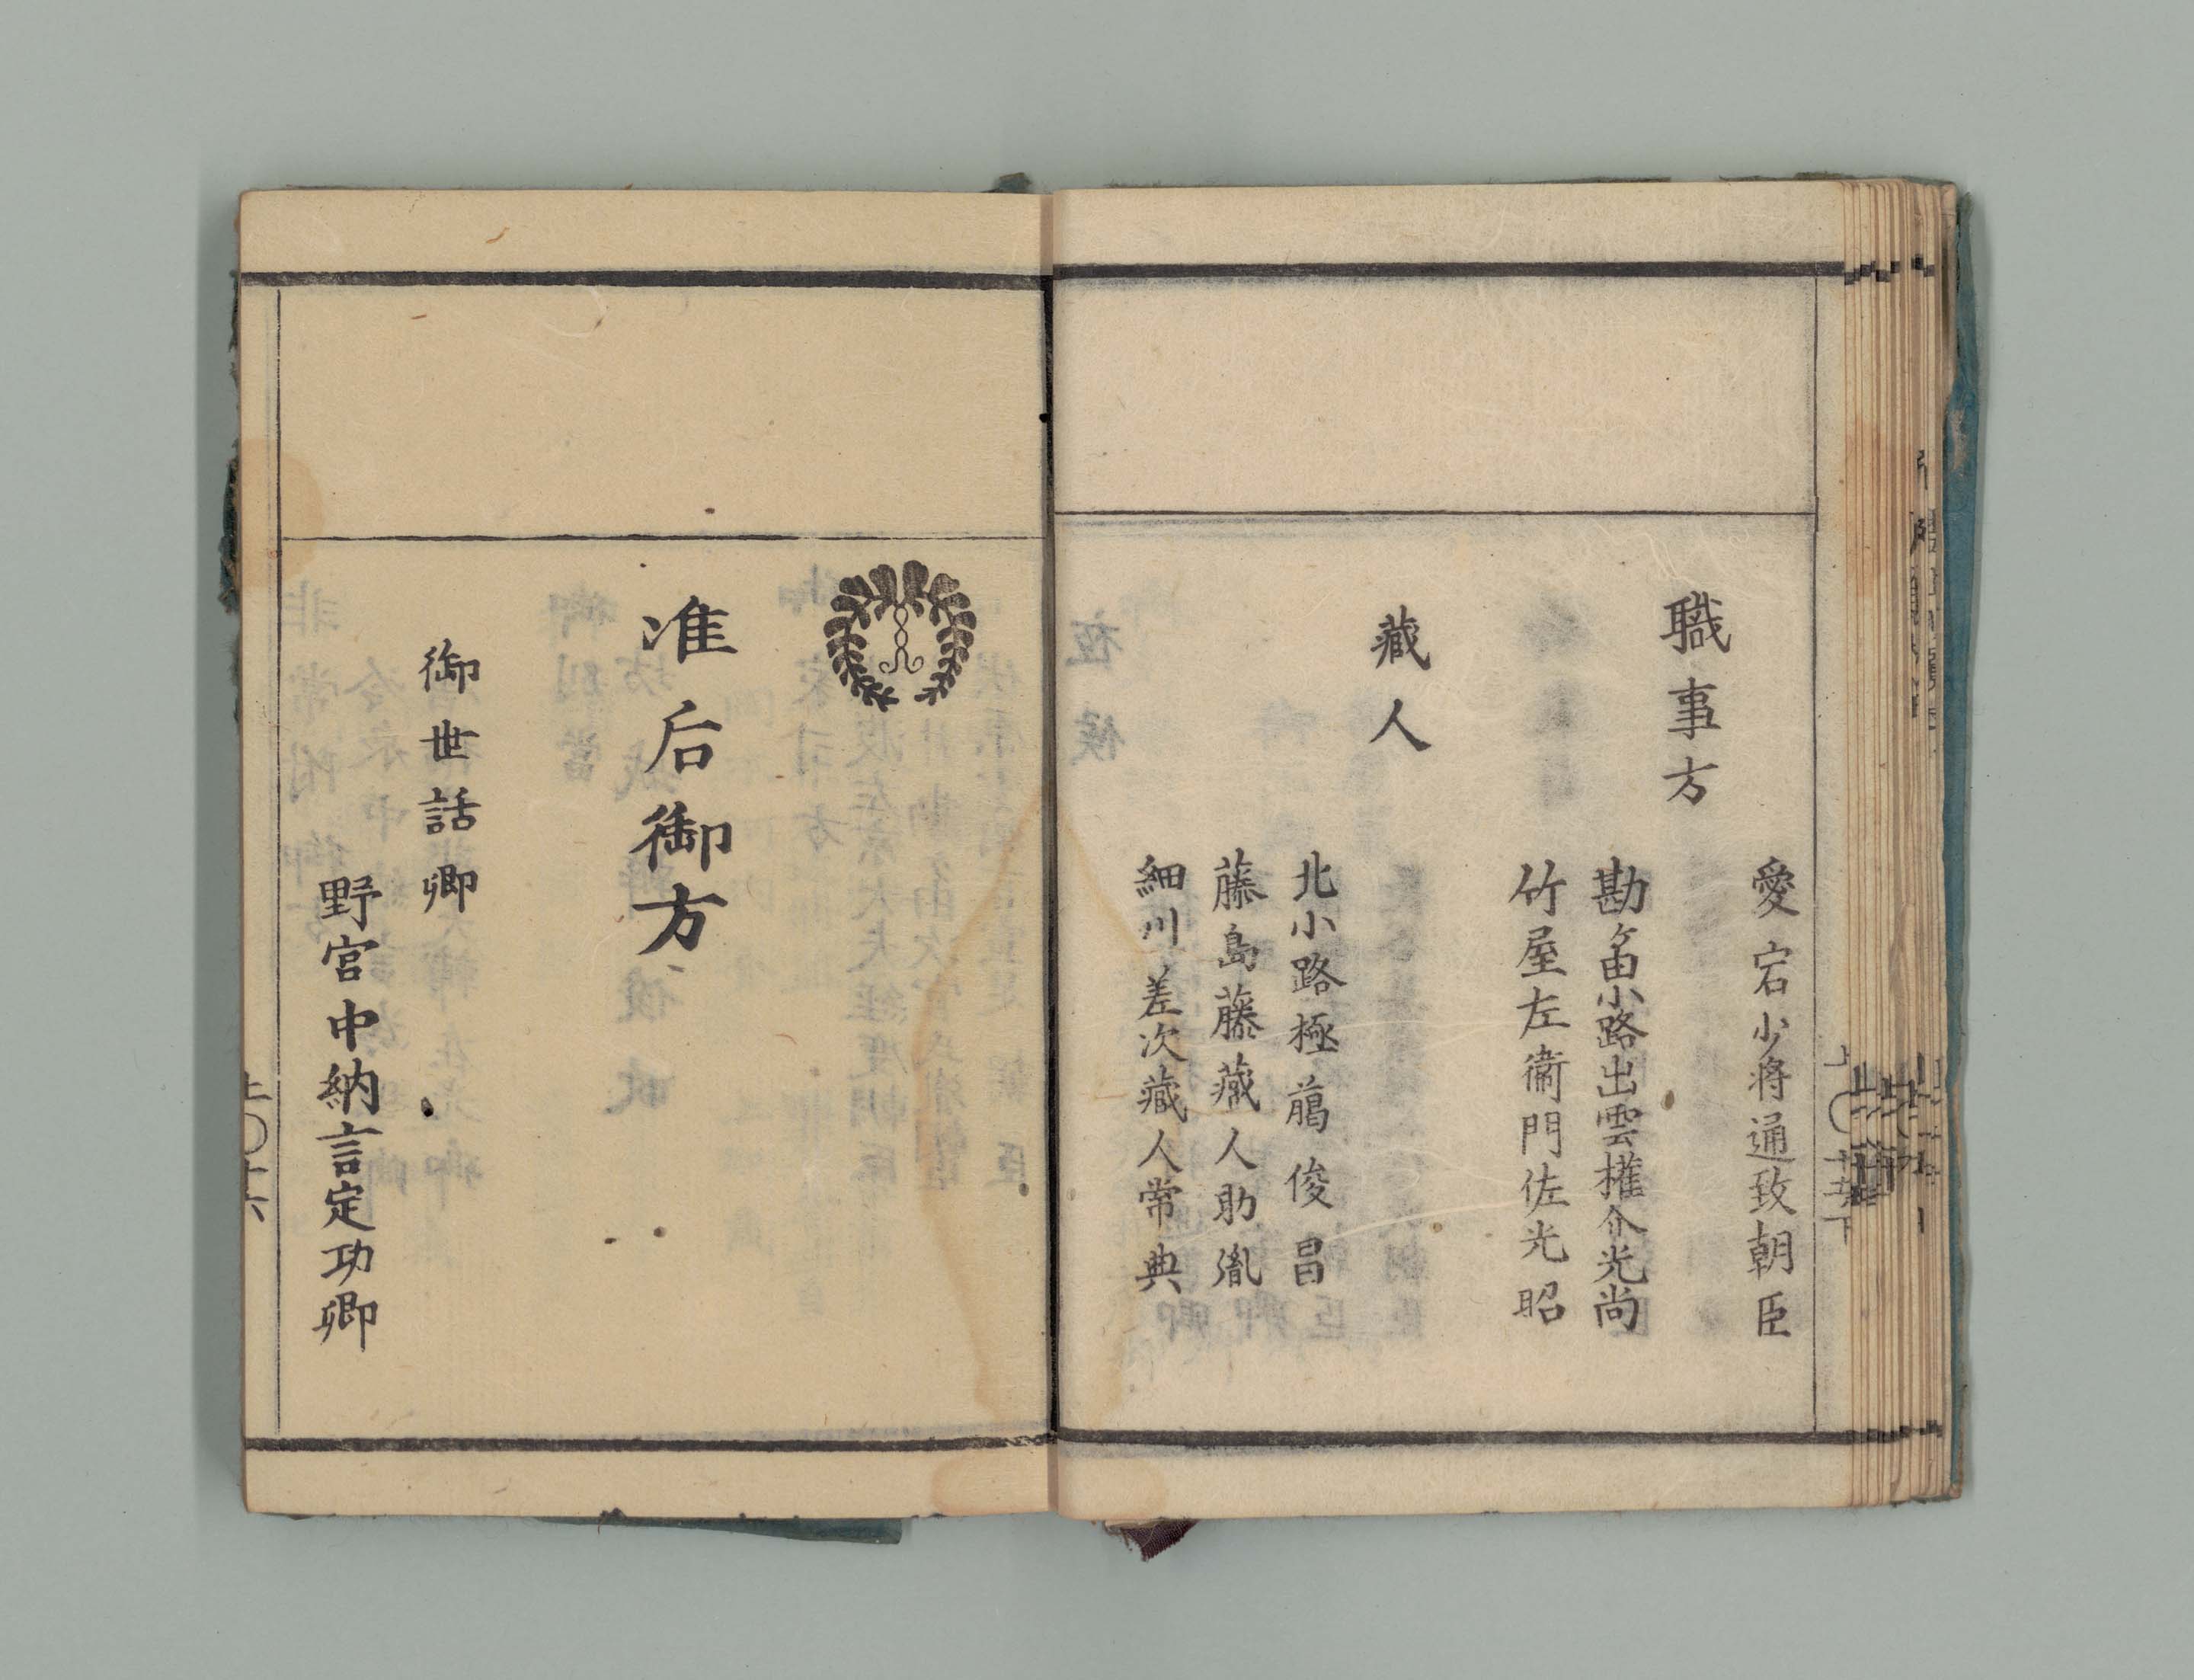 愛宕少将通致朝臣
職事方
勘ケ由小路出雲権介光尚
竹屋左衞門佐光昭
藏人
北小路極﨟俊昌
藤島藤藏人助胤
細川差次藏人常典
准后御方
御世話卿
野宮中納言定功卿
上〇十六